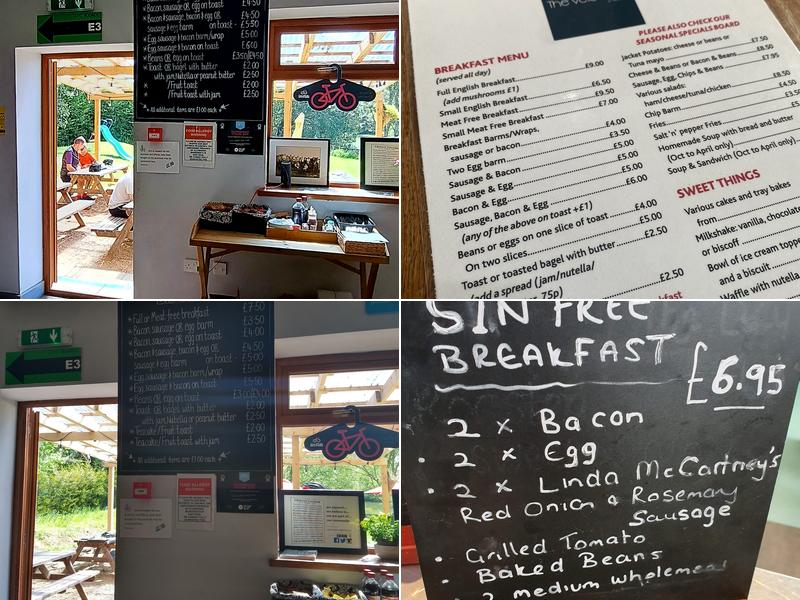 E3
Bacon sausage OR egg on toast £4·50
* Bacon & sausage, bacon & egg OR
sausage & egg barm on toast - £5·80
* Egg sausage & bacon barm/wrap £5·50
* Egg sausage & bacon on toast £6·00
* Beans OR egg on toast £3·50/£4·50
* Toast OR bagel with butter £2·50
with jam, Nutella or peanut butter £2·50
* £2·00
* /Fruit toast with jam £2·50
* All additional items are £1·00 each
FOOD ALLERGY
BREAKFAST MENU
(served all day)
Full English Breakfast £9.00
(add mushrooms £1)
Small English Breakfast £6.50
Meat Free Breakfast £9.50
Small Meat Free Breakfast £7.00
Breakfast Barms/Wraps,
sausage or bacon £4.00
Two Egg barm £3.50
Sausage & Bacon £5.00
Sausage & Egg £5.00
Bacon & Egg £5.00
Sausage, Bacon & Egg £6.00
(any of the above on toast +£1)
Beans or eggs on one slice of toast £4.00
On two slices £5.00
Toast or toasted bagel with butter £2.50
(add a spread (jam/nutella/
75p) £2.50
PLEASE ALSO CHECK OUR
SEASONAL SPECIALS BOARD
Jacket Potatoes: cheese or beans or
Tuna mayo £7.50
Cheese & Beans or Bacon & Beans £8.50
Sausage, Egg, Chips & Beans £7.95
Various salads:
ham/cheese/tuna/chicken £8.50
Chip Barm £4.50
Fries
Salt 'n' pepper Fries
Homemade Soup with bread and butter
(Oct to April only)
Soup & Sandwich (Oct to April only)
SWEET THINGS
Various cakes and tray bakes
from
Milkshake: vanilla, chocolate
or biscoff
Bowl of ice cream topped
and a biscuit
Waffle with nutella
E3
£7·50
* Full or Meat free breakfast £3·50
* Bacon, sausage OR egg barm £4·50
* Bacon, sausage OR egg on toast
* Bacon & sausage, bacon & egg OR
sausage & egg barm on toast - £5·00
* Egg sausage & bacon barm/wrap £5·50
* Egg sausage & bacon on toast
* Beans OR egg on toast
* Toast OR bagel with butter £2·00
with jam, Nutella or peanut butter £2·50
* Teacake/Fruit toast £2·00
* Teacake/Fruit toast with jam £2·50
* All additional items are £1·00 each
FOOD ALLERGY
SIN FREE
BREAKFAST
£6.95
2 x Bacon
• 2 x Egg
• 2 x Linda McCartney's
Red Onion & Rosemary
Sausage
• Grilled Tomato
• Baked Beans
2 medium wholemeal